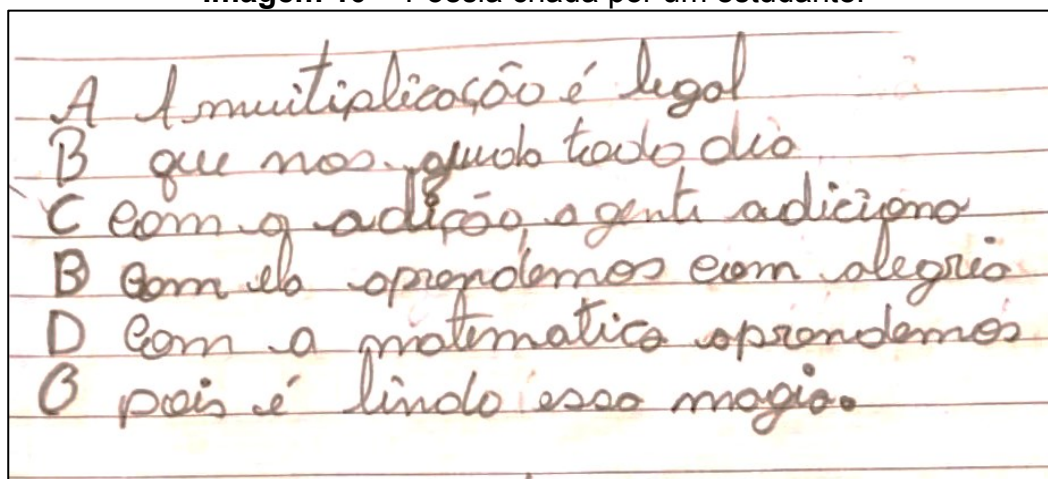 Imagem 10 – Poesia criada por um estudante.
A A muitiplicação é legal
B que nos ajuda todo dia
C com a adição, a gente adiciona
B com ela aprendemos com alegria
D Com a matematica aprendemos
B pois é linda essa magia.